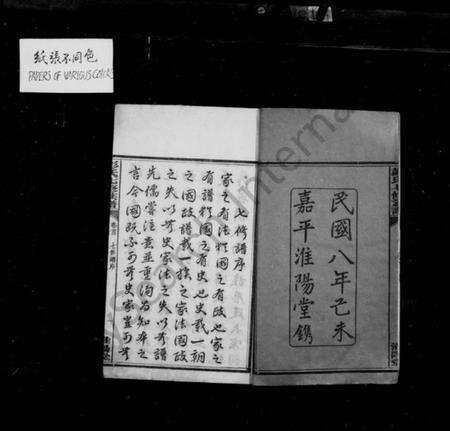 紙張不同色
PAPERS OF VARIOUS COLORS
民國八年己未
嘉平淮陽堂鐫
七修譜序
家之有法猶國之有政也家之
有譜猶國之有史也史載一朝
之國政譜載一族之家法國政
之失以考史家法之失以考譜
先儒嘗注意並重洵為知本之
言今國既不可無史家豈可無